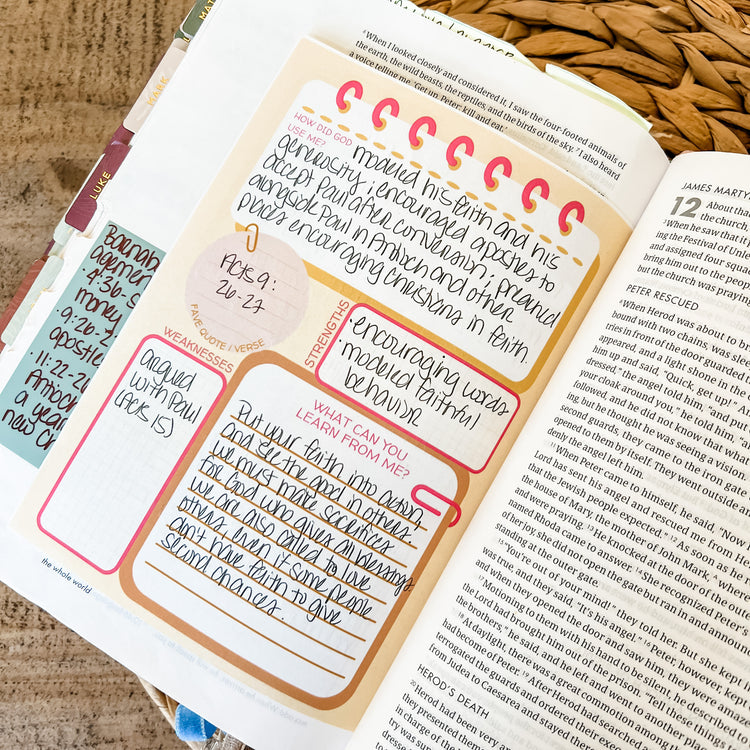 MARK
LUKE
⁶When I looked closely and considered it, I saw the four-footed animals of
the earth, the wild beasts, the reptiles, and the birds of the sky. ⁷I also heard
a voice telling me, 'Get up, Peter; kill and eat.'
HOW DID GOD
USE ME?
modeled his faith and his
generosity; encouraged apostles to
accept Paul after conversion; preached
alongside Paul in Antioch and other
places encouraging christians in faith.
Acts 9:
26-27
FAVE QUOTE / VERSE
STRENGTHS
• encouraging words
• modeled faithful
behavior
WEAKNESSES
argued
with Paul
(Acts 15)
WHAT CAN YOU
LEARN FROM ME?
Put your faith into action,
and see the good in others.
we must make sacrifices
for God who gives all blessings.
we are also called to love
others even if some people
don't have faith to give
second chances.
• 4:36-
money
• 9:26-2
apostle
• 11:22-26
Antioch
a year
new C
the whole world
JAMES MARTY
12 About tha
the church
When he saw that it
ing the Festival of Unle
and assigned four squa
bring him out to the peop
but the church was praying
PETER RESCUED
⁶When Herod was about to b
bound with two chains, was slee
tries in front of the door guarded
appeared, and a light shone in the
him up and said, "Quick, get up!"
dressed," the angel told him, "and put
your cloak around you," he told him, "
followed, and he did not know that what
ing, but he thought he was seeing a vision.
second guards, they came to the iron gate
opened to them by itself. They went outside an
denly the angel left him.
¹¹When Peter came to himself, he said, "Now
Lord has sent his angel and rescued me from He
that the Jewish people expected." ¹²As soon as he
the house of Mary, the mother of John Mark, where
and were praying. ¹³He knocked at the door of the ou
named Rhoda came to answer. ¹⁴She recognized Peter'
of her joy, she did not open the gate but ran in and announ
standing at the outer gate.
¹⁵"You're out of your mind!" they told her. But she kept
was true, and they said, "It's his angel." ¹⁶Peter, however,
and when they opened the door and saw him, they were amaz
¹⁷Motioning to them with his hand to be silent, he described
the Lord had brought him out of the prison. "Tell these things t
the brothers," he said, and he left and went to another place.
¹⁸At daylight, there was a great commotion among
had become of Peter. ¹⁹After Herod had searched
terrogated the guards and ordered their execution
from Judea to Caesarea and stayed there
HEROD'S DEATH
²⁰Herod had been very an
they presented themsel
in charge of the
try was su
dressed